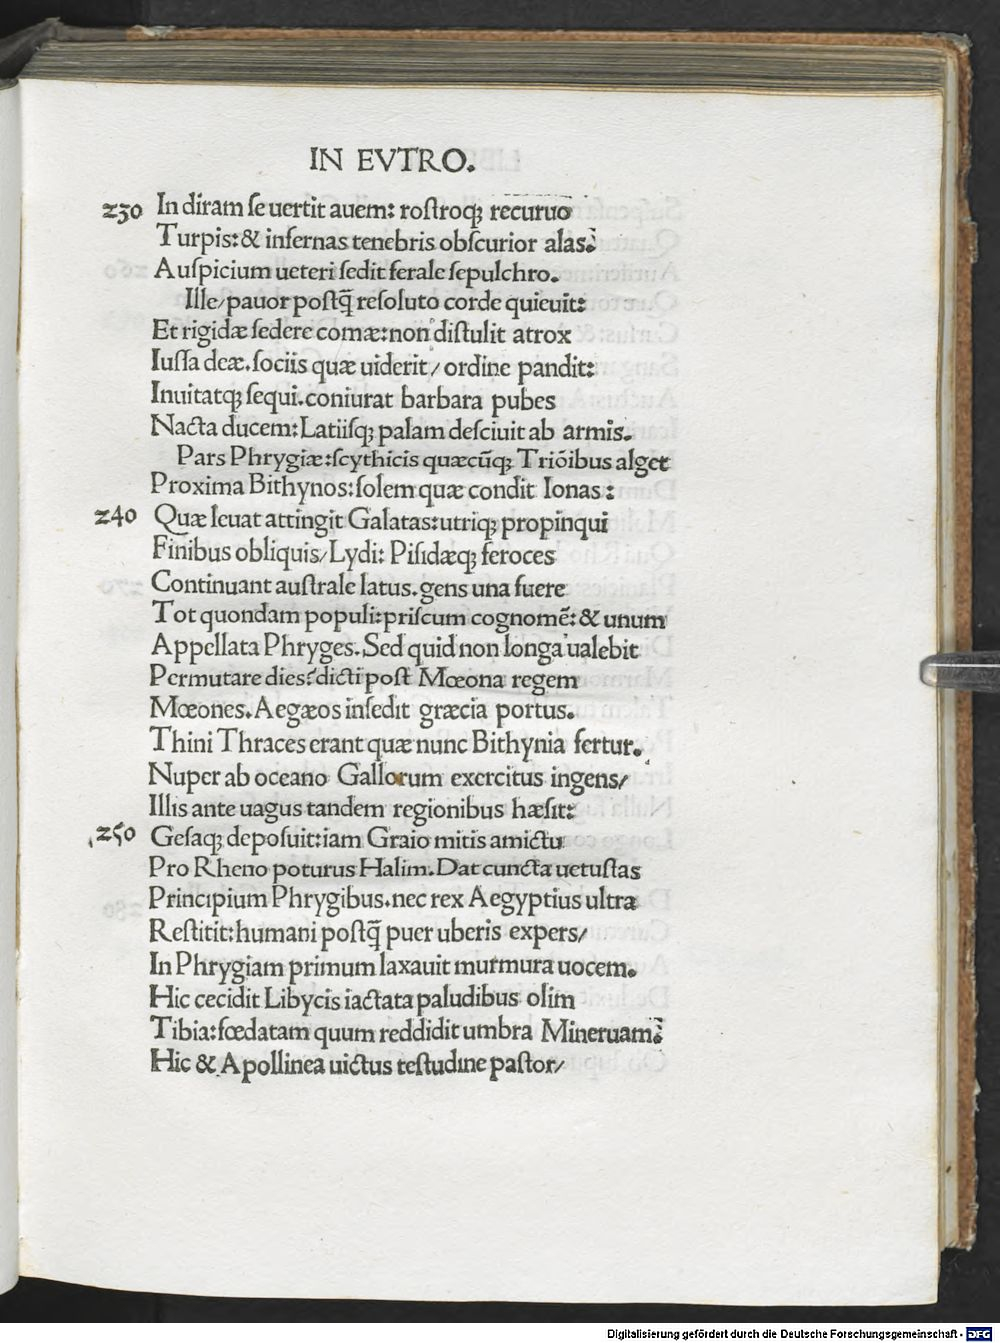 IN EVTRO.
230 In diram ſe uertit auem: roſtroqꝫ recuruo
Turpis: & infernas tenebris obſcurior alas:
Auſpicium ueteri ſedit ferale ſepulchro.
Ille/ pauor poſtq̄ reſoluto corde quieuit:
Et rigidæ ſedere comæ: non diſtulit atrox
Iuſſa deæ. ſociis quæ uiderit/ ordine pandit:
Inuitatqꝫ ſequi. coniurat barbara pubes
Nacta ducem: Latiiſqꝫ palam deſciuit ab armis.
Pars Phrygiæ: ſcythicis quæcūqꝫ Triōibus alget
Proxima Bithynos: ſolem quæ condit Ionas:
240 Quæ leuat attingit Galatas: utriqꝫ propinqui
Finibus obliquis/ Lydi: Piſidæqꝫ feroces
Continuant auſtrale latus. gens una fuere
Tot quondam populi: priſcum cognomē: & unum
Appellata Phryges. Sed quid non longa ualebit
Permutare dies? dicti poſt Mœona regem
Mœones. Aegæos inſedit græcia portus.
Thini Thraces erant quæ nunc Bithynia fertur.
Nuper ab oceano Gallorum exercitus ingens/
Illis ante uagus tandem regionibus hæſit:
250 Geſaqꝫ depoſuit: iam Graio mitis amictu
Pro Rheno poturus Halim. Dat cuncta uetuſtas
Principium Phrygibus. nec rex Aegyptius ultra
Reſtitit: humani poſtq̄ puer uberis expers/
In Phrygiam primum laxauit murmura uocem.
Hic cecidit Libycis iactata paludibus olim
Tibia: fœdatam quum reddidit umbra Mineruam:
Hic & Apollinea uictus teſtudine paſtor/
Digitalisierung gefördert durch die Deutsche Forschungsgemeinschaft - DFG